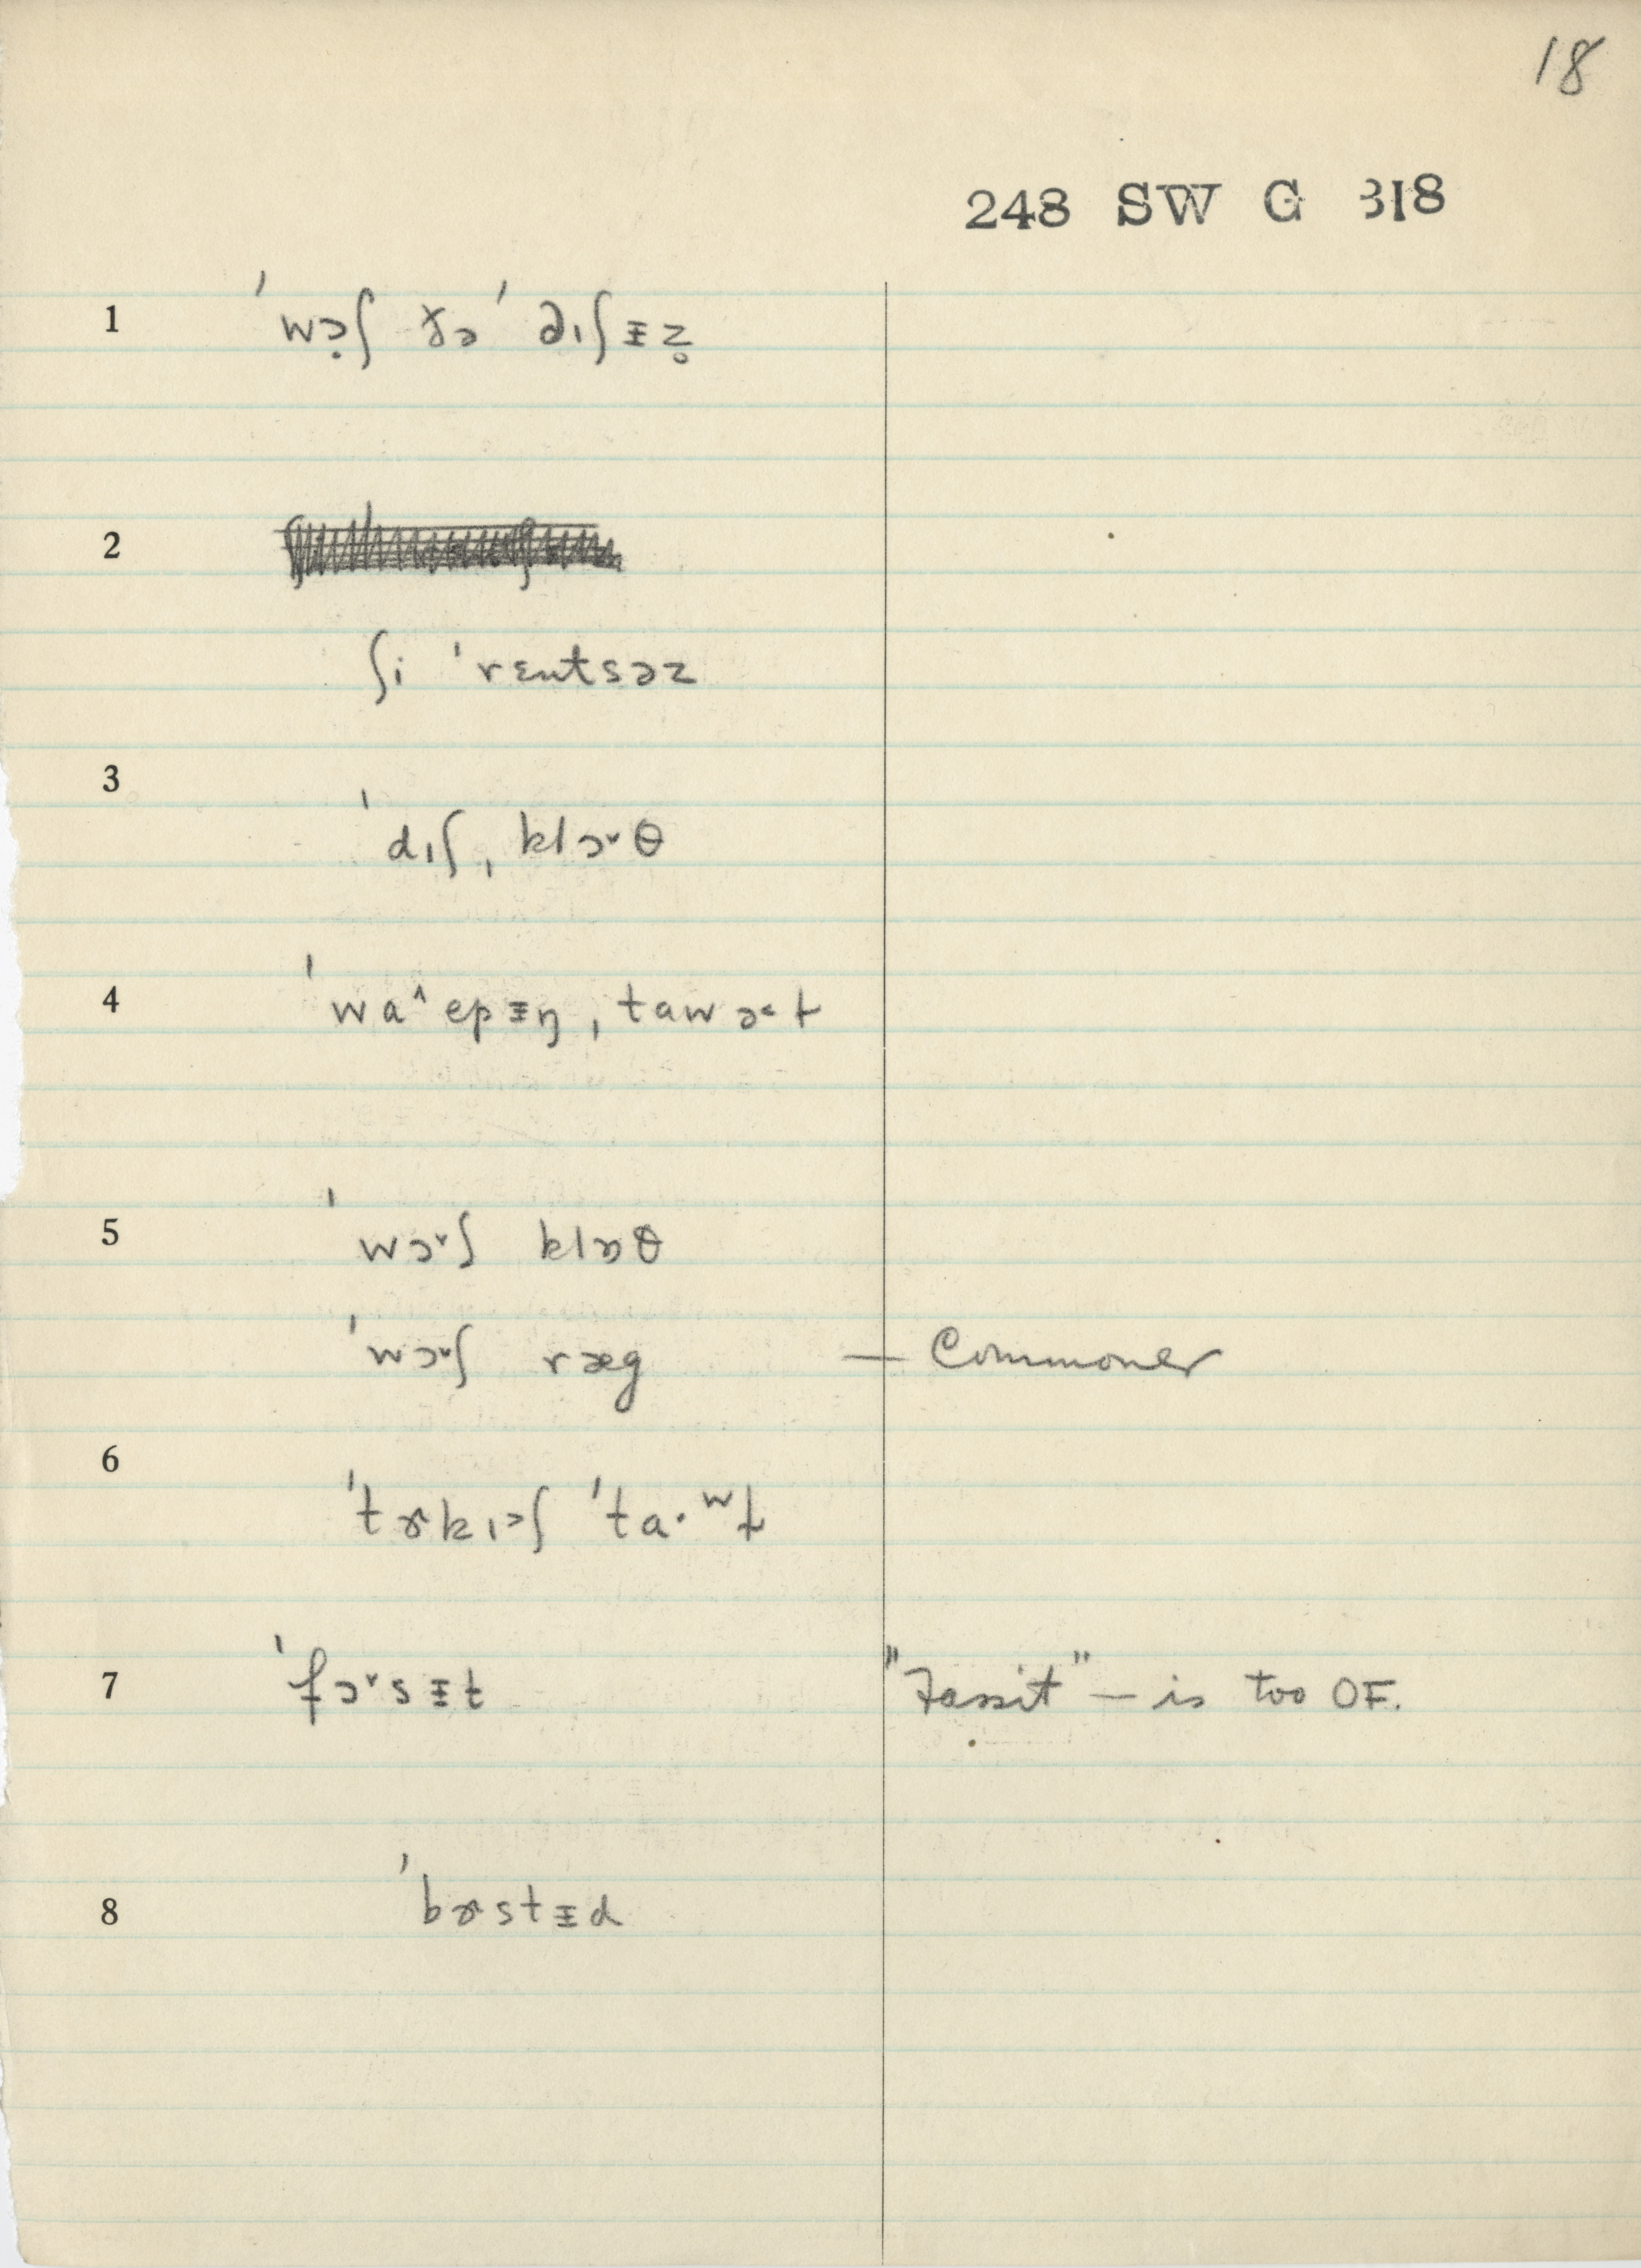 18
248 SW G 318
1 ˈwɔ̣ʃ ðə ˈdɪʃɨz̥
2
ʃi ˈrɛntsəz
3 ˈdɪʃˌklɔ˅θ
4 ˈwa˄epɨŋˌtawə˂ɫ
5 ˈwɔ˅ʃ klɒθ
ˈwɔ˅ʃ ræg — Commoner
6 ˈtɝkɪ˃ʃ ˈta·ʷɫ
7 ˈfɔ˅sɨt "Fassit" — is too OF.
8 ˈbɝstɨd